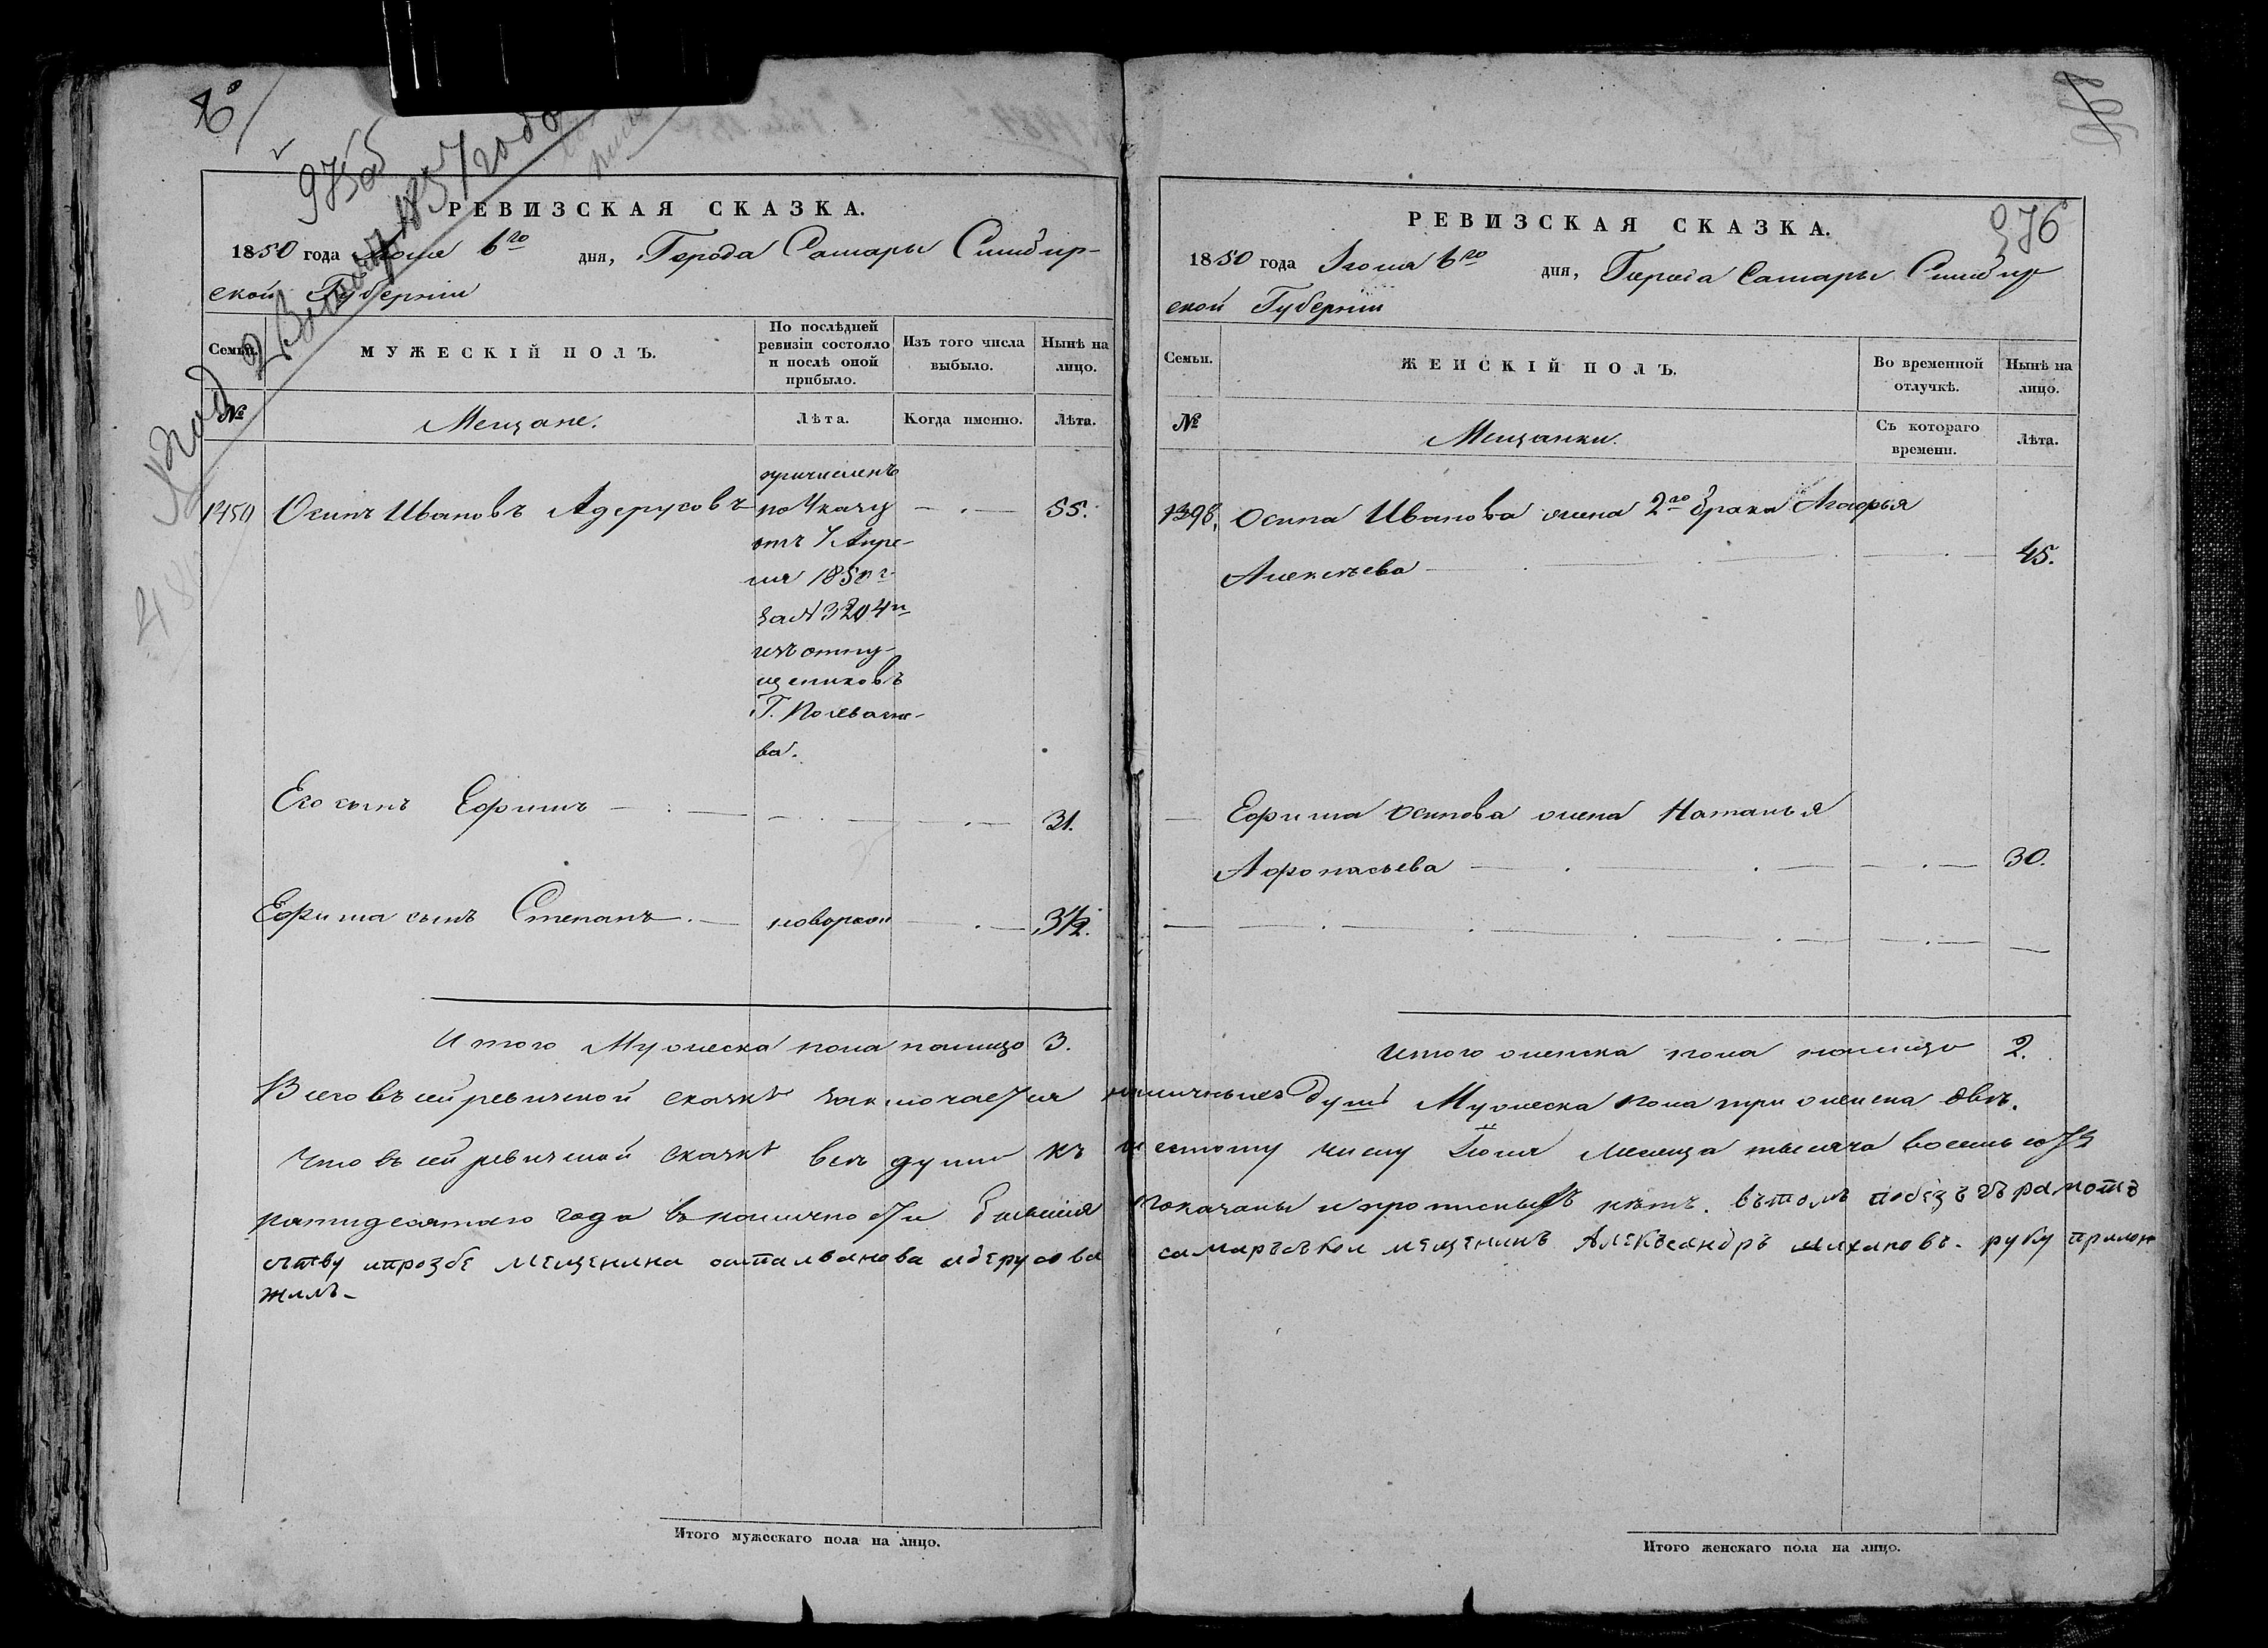 975об
976
РЕВИЗСКАЯ СКАЗКА.
1850 года Іюня 6го дня, Города Самары Симбир-
ской Губерніи
Семьи. МУЖЕСКІЙ ПОЛЪ. По послѣдней ревизіи состояло и послѣ оной прибыло. Изъ того числа выбыло. Нынѣ на лицо.
№ Мещане. Лѣта. Когда именно. Лѣта.
причисленъ
1450 Осипъ Ивановъ Адерусовъ по Указу 55.
отъ 7 Апре-
ля 1850 г
за № 3204м
изъ отпу-
щениковъ
Г. Полвано-
ва.
Его сынъ Ефимъ 31.
Ефима сынъ Степанъ. новорож 3 1/2.
Итого Мужеска пола налицо 3.
РЕВИЗСКАЯ СКАЗКА.
1850 года Іюня 6го дня, Города Самары Симбир
ской Губерніи
Семьи. ЖЕНСКІЙ ПОЛЪ. Во временной отлучкѣ. Нынѣ на лицо.
№ Мещанки. Съ котораго времени. Лѣта.
Осипа Иванова жена 2го брака Агафья
Алексѣева 45.
Ефима Осипова жена Наталья
Афонасьева 30.
Итого женска пола налицо 2.
Всего въ сей ревизской сказкѣ заключается наличныхъ душъ Мужеска пола три женска двѣ.
Что въ сей ревизской сказкѣ всѣ души къ шестому числу Іюня Месяца тысяча восемьсотъ
пятидесятаго года въ наличности бывшія показаны и прописныхъ нѣтъ. вътомъ побезъгърамотъ
сътву ипрозбе мещенина адерусова самаръской мещенинъ Алекъсандръ рукy прило
жилъ
Итого мужескаго пола на лицо.
Итого женскаго пола на лицо.